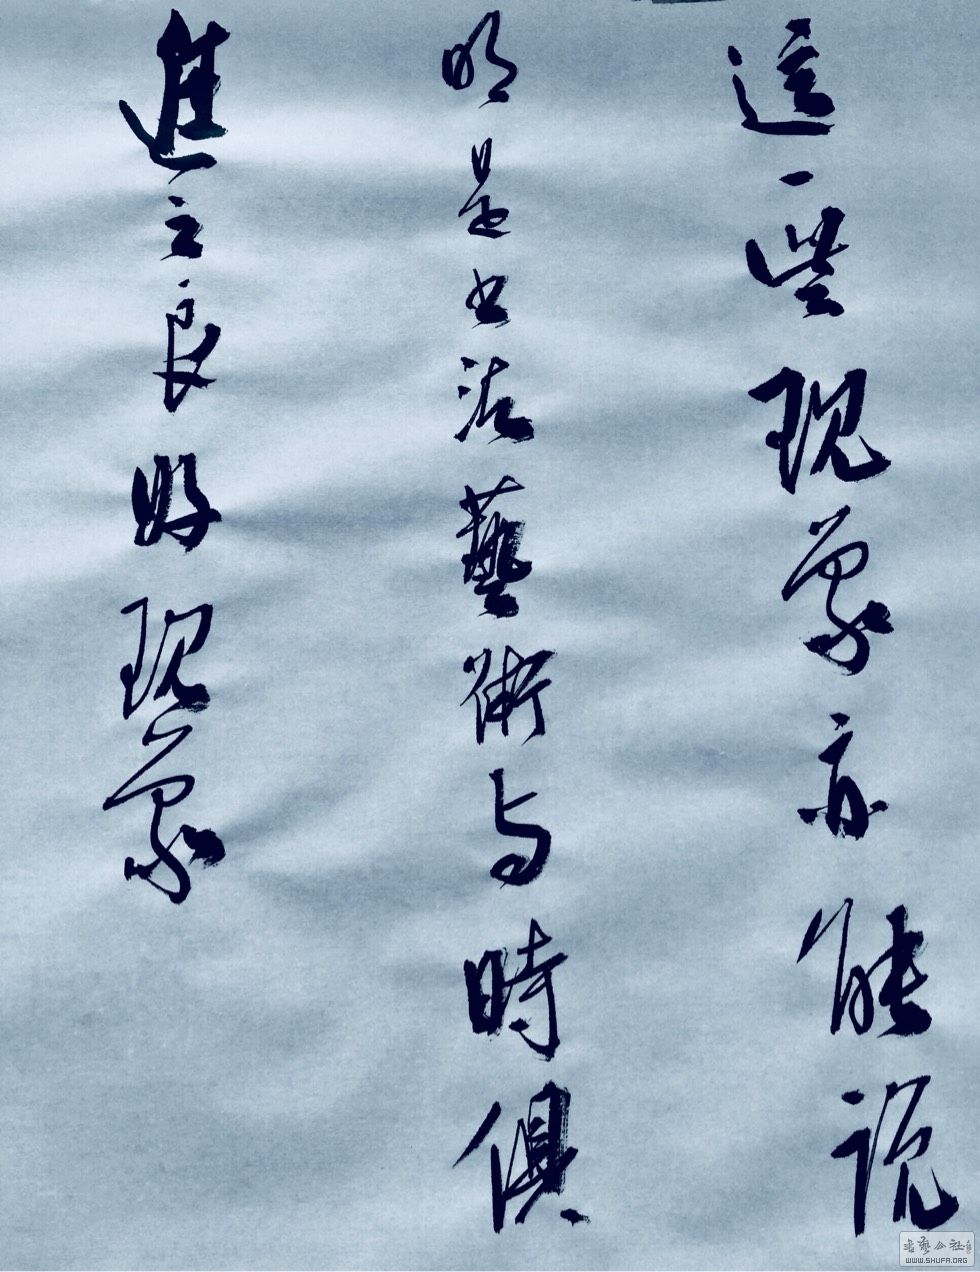 這一些現象亦能說
明是书法藝術与時俱
進之良好現象
書藝公社
WWW.SHUFA.ORG